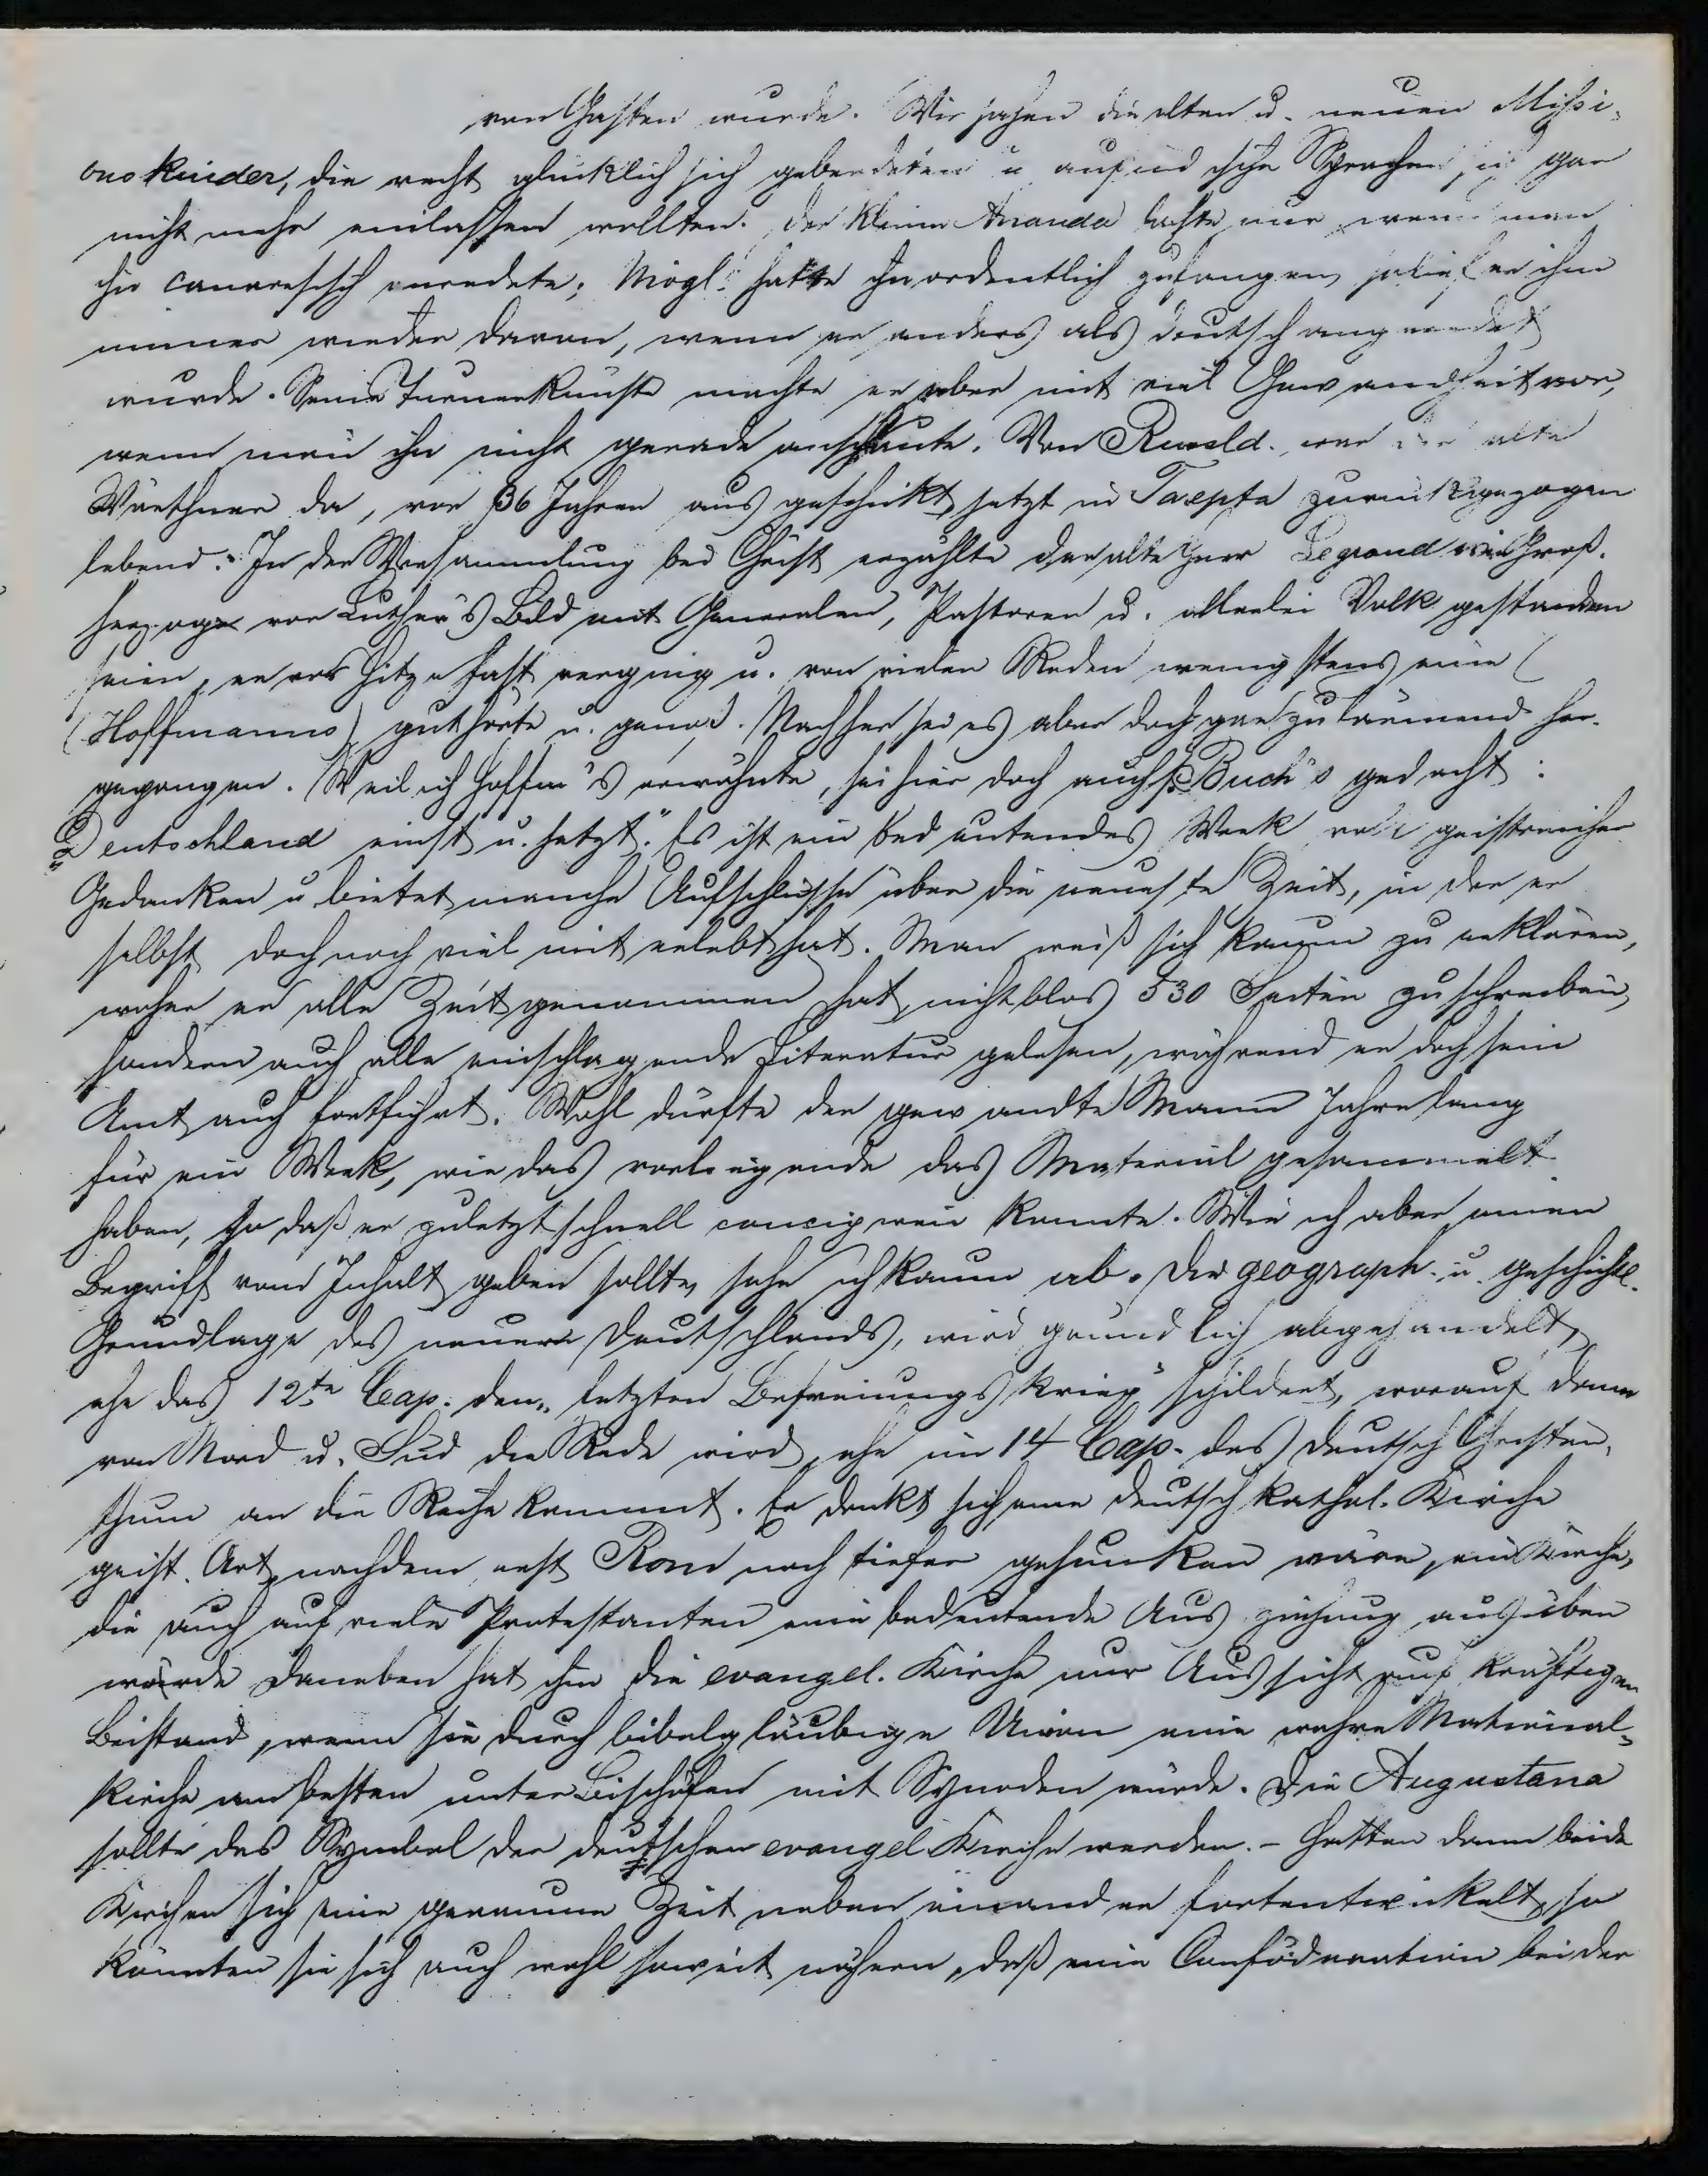 von Gästen wurde. Wir sahen die alten u. neuen Missi-
onskinder, die recht glücklich sich geberdeten u auf indische Sprachen sich gar
nicht mehr einlassen wollten. Der kleine Ananda lachte nur wenn man
ihn canaresisch anredete; Mögl. hatte ihn ordentlich gefangen, so lief er ihm
immer wieder davon, wenn er anders als deutsch angeredet
wurde. Seine Turnerkünste machte er aber mit viel Gewandheit vor,
wenn man ihn nicht gerade anschaute. Von war der alte
Würthner da, vor 36 Jahren ausgeschickt, jetzt in Sarepta zurückgezogen
lebend. In der Versammlung bei Christ erzählte der alte Herr Legrand wie Groß-
herzoge vor Luther's Bild mit Generalen, Pastoren u. allerlei Volk gestanden
seien, er vor Hitze fast verging u. von vielen Reden wenigstens eine
(Hoffmanns) gut hörte u. genoß. Nachher sei es aber doch gar zu lärmend her-
gegangen. Weil ich Hoffm's erwähnte, sei hier doch auch s. Buch's gedacht:
"Deutschland einst u. jetzt." Es ist ein bedeutendes Werk voll geistreicher
Gedanken u bietet manche Aufschlüsse über die neueste Zeit, in der er
selbst doch noch viel mit erlebt hat. Man weiß sich kaum zu erklären,
woher er alle Zeit genommen hat, nicht blos 530 Seiten zu schreiben,
sondern auch alle einschlagende Literatur gelesen, während er doch sein
Amt auch fortführt. Wohl dürfte der gewandte Mann Jahre lang
für ein Werk, wie das vorliegende das Material gesammelt
haben, so daß er zuletzt schnell concipiren konnte. Wie ich aber einen
Begriff vom Inhalt geben sollte, sehe ich kaum ab. Die geograph. u. geschichtl.
Grundlage des neuern Deutschlands, wird gründlich abgehandelt,
ehe das 12te Cap. den „letzten Befreiungskrieg" schildert, worauf dann
von Nord u. Süd die Rede wird, ehe im 14 Cap. das deutsch Christen-
thum an die Reihe kommt. Er denkt sich eine deutsch kathol. Kirche
geist. Art, nachdem erst Rom noch tiefer gesunken wäre, ein Kirche,
die auch auf viele Protestanten eine bedeutende Ausziehung ausüben
würde Daneben hat ihm die evangel. Kirche nur Aussicht auf kräftigen
Beistand, wenn sie durch bibelgläubige Union eine wahre National-
kirche am besten unter Bischöfen mit Synoden würde. Die Augustana
sollte das Symbol der deutschen evangel Kirche werden. - Hätten dann beide
Kirchen sich eine geraume Zeit neben einander fortentwickelt, so
könnten sie sich auch wohl soweit nähern, daß eine Conföderation beider